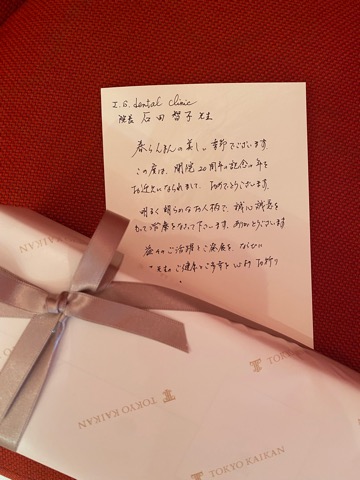 I.B. dental clinic
院長 石田智子先生
春らんまんの美しい季節でございます。
この度は、開院20周年の記念の年を
お迎えになられまして、おめでとうございます。
明るく頼られるお人柄で、誠心誠意を
もって治療をなさって下さいます。ありがとうございます
益々のご活躍とご発展を、ならびに
ご健康とご多幸を心よりお祈り
TOKYO KAIKAN
TOKYO KAIKAN
TOKYO KAIKAN